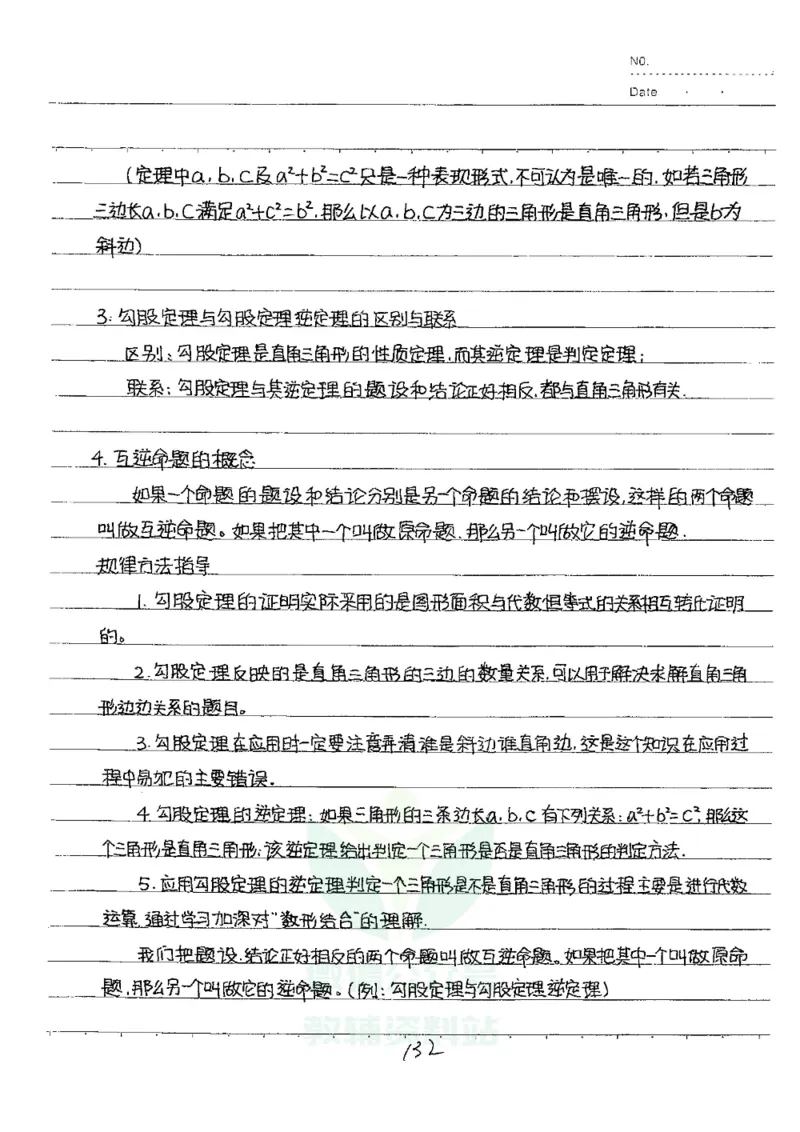 NO.
Date
(定理中a,b,c及a²+b²=c²只是一种表现形式,不可认为是唯一的,如若三角形
三边长a,b,c满足a²+c²=b²,那么以a,b,c为三边的三角形是直角三角形,但是b为
斜边)
3.勾股定理与勾股定理逆定理的区别与联系
区别:勾股定理是直角三角形的性质定理,而其逆定理是判定定理;
联系:勾股定理与其逆定理的题设和结论正好相反,都与直角三角形有关.
4.互逆命题的概念
如果一个命题的题设和结论分别是另一个命题的结论和摆设,这样的两个命题
叫做互逆命题。如果把其中一个叫做原命题,那么另一个叫做它的逆命题.
规律方法指导
1.勾股定理的证明实际采用的是图形面积与代数恒等式的关系相互转化证明
的。
2.勾股定理反映的是直角三角形的三边的数量关系,可以用于解决求解直角三角
形边边关系的题目。
3.勾股定理在应用时一定要注意弄清谁是斜边谁直角边,这是这个知识在应用过
程中易犯的主要错误.
4.勾股定理的逆定理:如果三角形的三条边长a,b,c有下列关系:a²+b²=c²,那么这
个三角形是直角三角形;该逆定理给出判定一个三角形是否是直角三角形的判定方法.
5.应用勾股定理的逆定理判定一个三角形是不是直角三角形的过程主要是进行代数
运算,通过学习加深对“数形结合”的理解.
我们把题设、结论正好相反的两个命题叫做互逆命题。如果把其中一个叫做原命
题,那么另一个叫做它的逆命题。(例:勾股定理与勾股定理逆定理)
微信公众号
教辅资料站
132